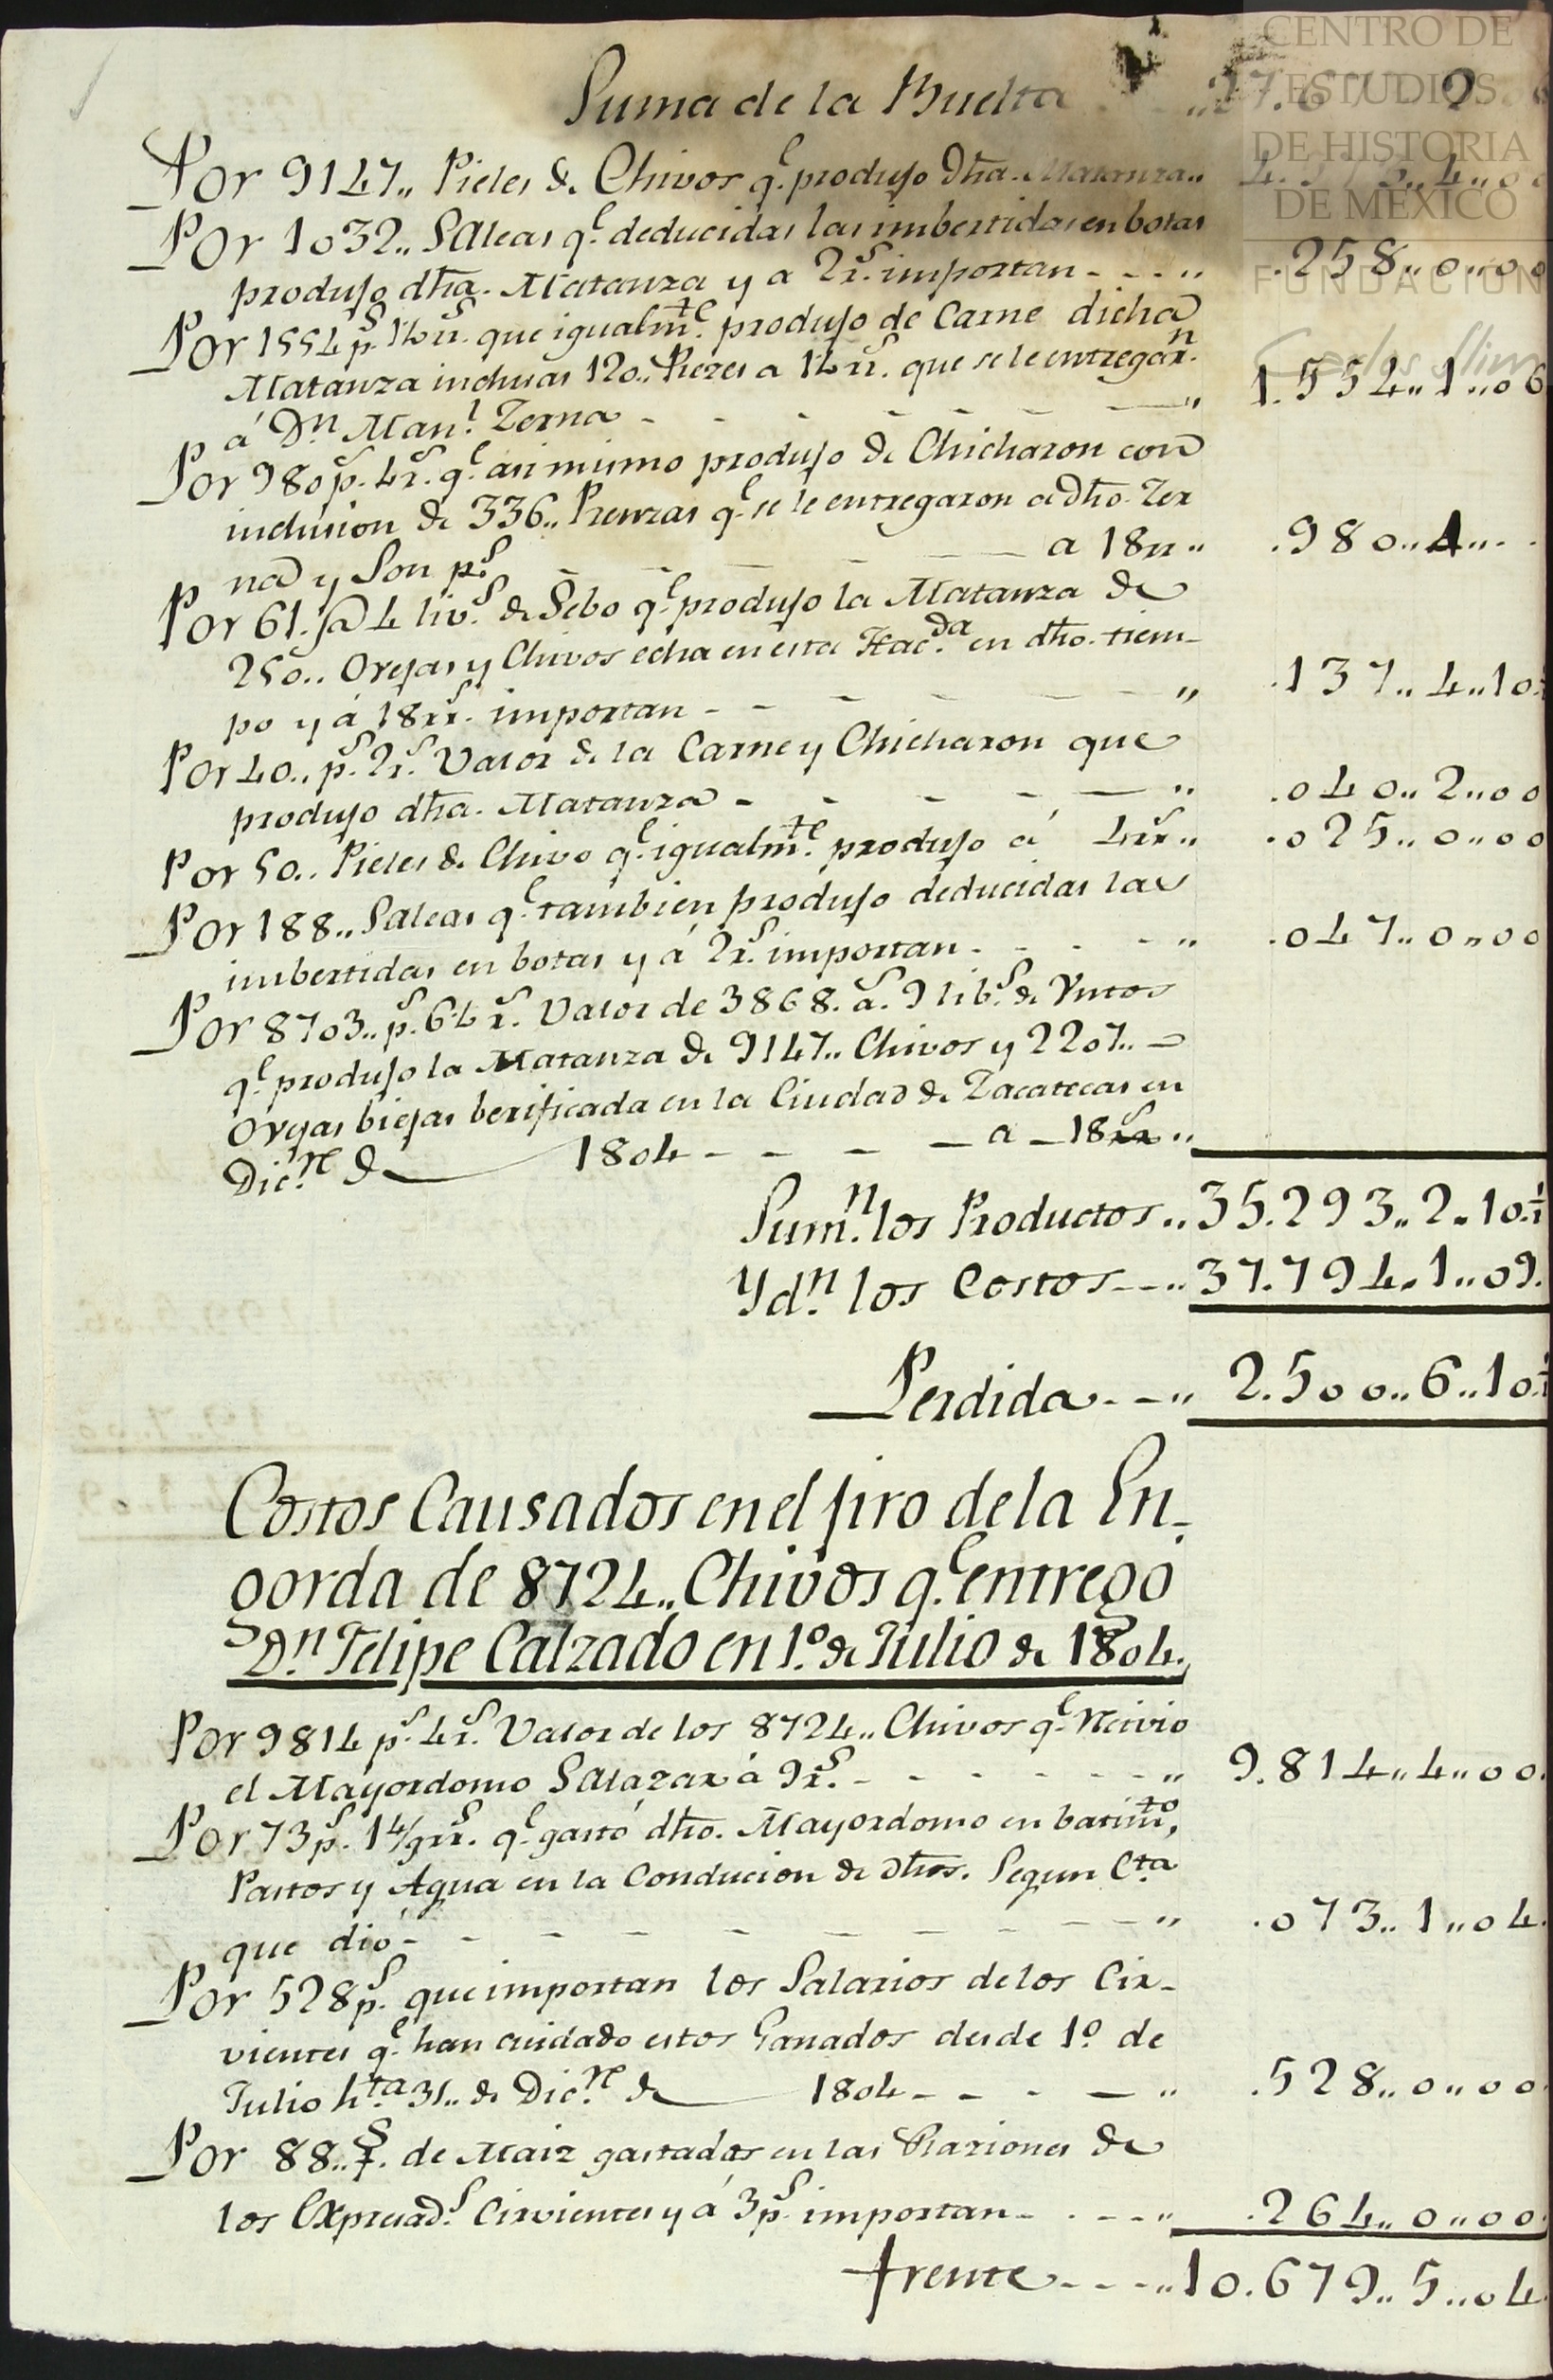 CENTRO DE
ESTUDIOS
DE HISTORIA
DE MÉXICO
FUNDACIÓN
Carlos Slim
Suma de la Buelta
Por 9147,, Pieles de Chivos q.e produjo dha. Matanza,, 4.573,,4,,00
Por 1032,, Saleas q.e deducidas las imbertidas en botas
produjo dha. Matanza y a 2rs. importan - - - ,, .258,,0,,00
Por 1554 ps. 1½ rs. que igualmte. produjo de Carne dicha
Matanza inclusas 120,, Rezes a 12 rs. que se le entregan.
á Dn. Manl. Zerna - - - - - - ,, 1.554,,1,,06
Por 980 ps. 4 rs. q.e asi mismo produjo de Chicharon con
inclusion de 336,, Prenzas q.e se le entregaron a dho. Zer
na y Son ps. - - - a 18rr,, .980,,4,,..
Por 61. @ 4 libs. de Sebo q.e produjo la Matanza de
250,, Ovejas y Chivos echa en esta Hacda. en dho. tiem-
po y á 18rrs. importan - - - - - ,, .137,,4,,10
Por 40,, ps. 2rs. Valor de la Carne y Chicharon que
produjo dha. Matanza - - - - - ,, .040,,2,,00
Por 50,, Pieles de Chivo q.e igualmte. produjo á 4rrs,, .025,,0,,00
Por 188,, Saleas q.e tambien produjo deducidas las
imbertidas en botas y á 2rs. importan - - - - ,, .047,,0,,00
Por 8703,, ps. 6½ rs. Valor de 3868. as. 9 libs. de Untos
q.e produjo la Matanza de 9147,, Chivos y 2207,, =
Ovejas biejas berificada en la Ciudad de Zacatecas en
Dicre. de 1804 - - - - a - 18rrs ,,
Sumn. los Productos ,, 35.293,,2,,10.½
Ydn. los Costos - - ,, 37.794,,1,,09.
Perdida - - ,, 2.500,,6,,10.½
Costos Causados en el jiro de la En-
gorda de 8724,, Chivos q.e entregó
Dn. Felipe Calzado en 1.o de Julio de 1804.,
Por 9814 ps. 4rs. Valor de los 8724,, Chivos q.e Recivio
el Mayordomo Salazar á 9rs. - - - - - - ,, 9.814,,4,,00.
Por 73 ps. 1 4/9 rrs. q.e gastó dho. Mayordomo en batimto,
Pastos y Agua en la Conducion de dhos. Segun Cta
que dió - - - - - - - - ,, .073,,1,,04.
Por 528 ps. que importan los Salarios de los Cir-
vientes q.e han cuidado estos Ganados desde 1.o de
Julio hta 31,, de Dicre. de 1804 - - - - ,, .528,,0,,00.
Por 88,, fs. de Maiz gastadas en las Raziones de
los Expresads. Cirvientes y á 3 ps. importan - - - - ,, .264,,0,,00.
frente - - - ,, 10.679,,5,,04